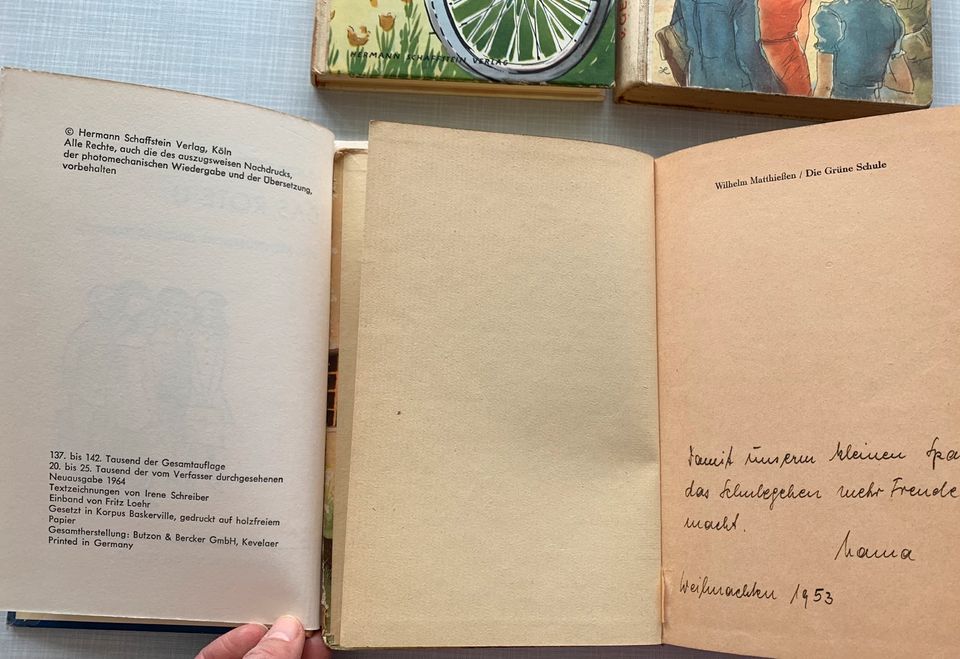 HERMANN SCHAFFSTEIN VERLAG
© Hermann Schaffstein Verlag, Köln
Alle Rechte, auch die des auszugsweisen Nachdrucks,
der photomechanischen Wiedergabe und der Übersetzung,
vorbehalten
137. bis 142. Tausend der Gesamtauflage
20. bis 25. Tausend der vom Verfasser durchgesehenen
Neuausgabe 1964
Textzeichnungen von Irene Schreiber
Einband von Fritz Loehr
Gesetzt in Korpus Baskerville, gedruckt auf holzfreiem
Papier
Gesamtherstellung: Butzon & Bercker GmbH, Kevelaer
Printed in Germany
Wilhelm Matthießen / Die Grüne Schule
Damit unserm kleinen Spa
das Schulegehen mehr Freude
macht.
Mama
Weihnachten 1953